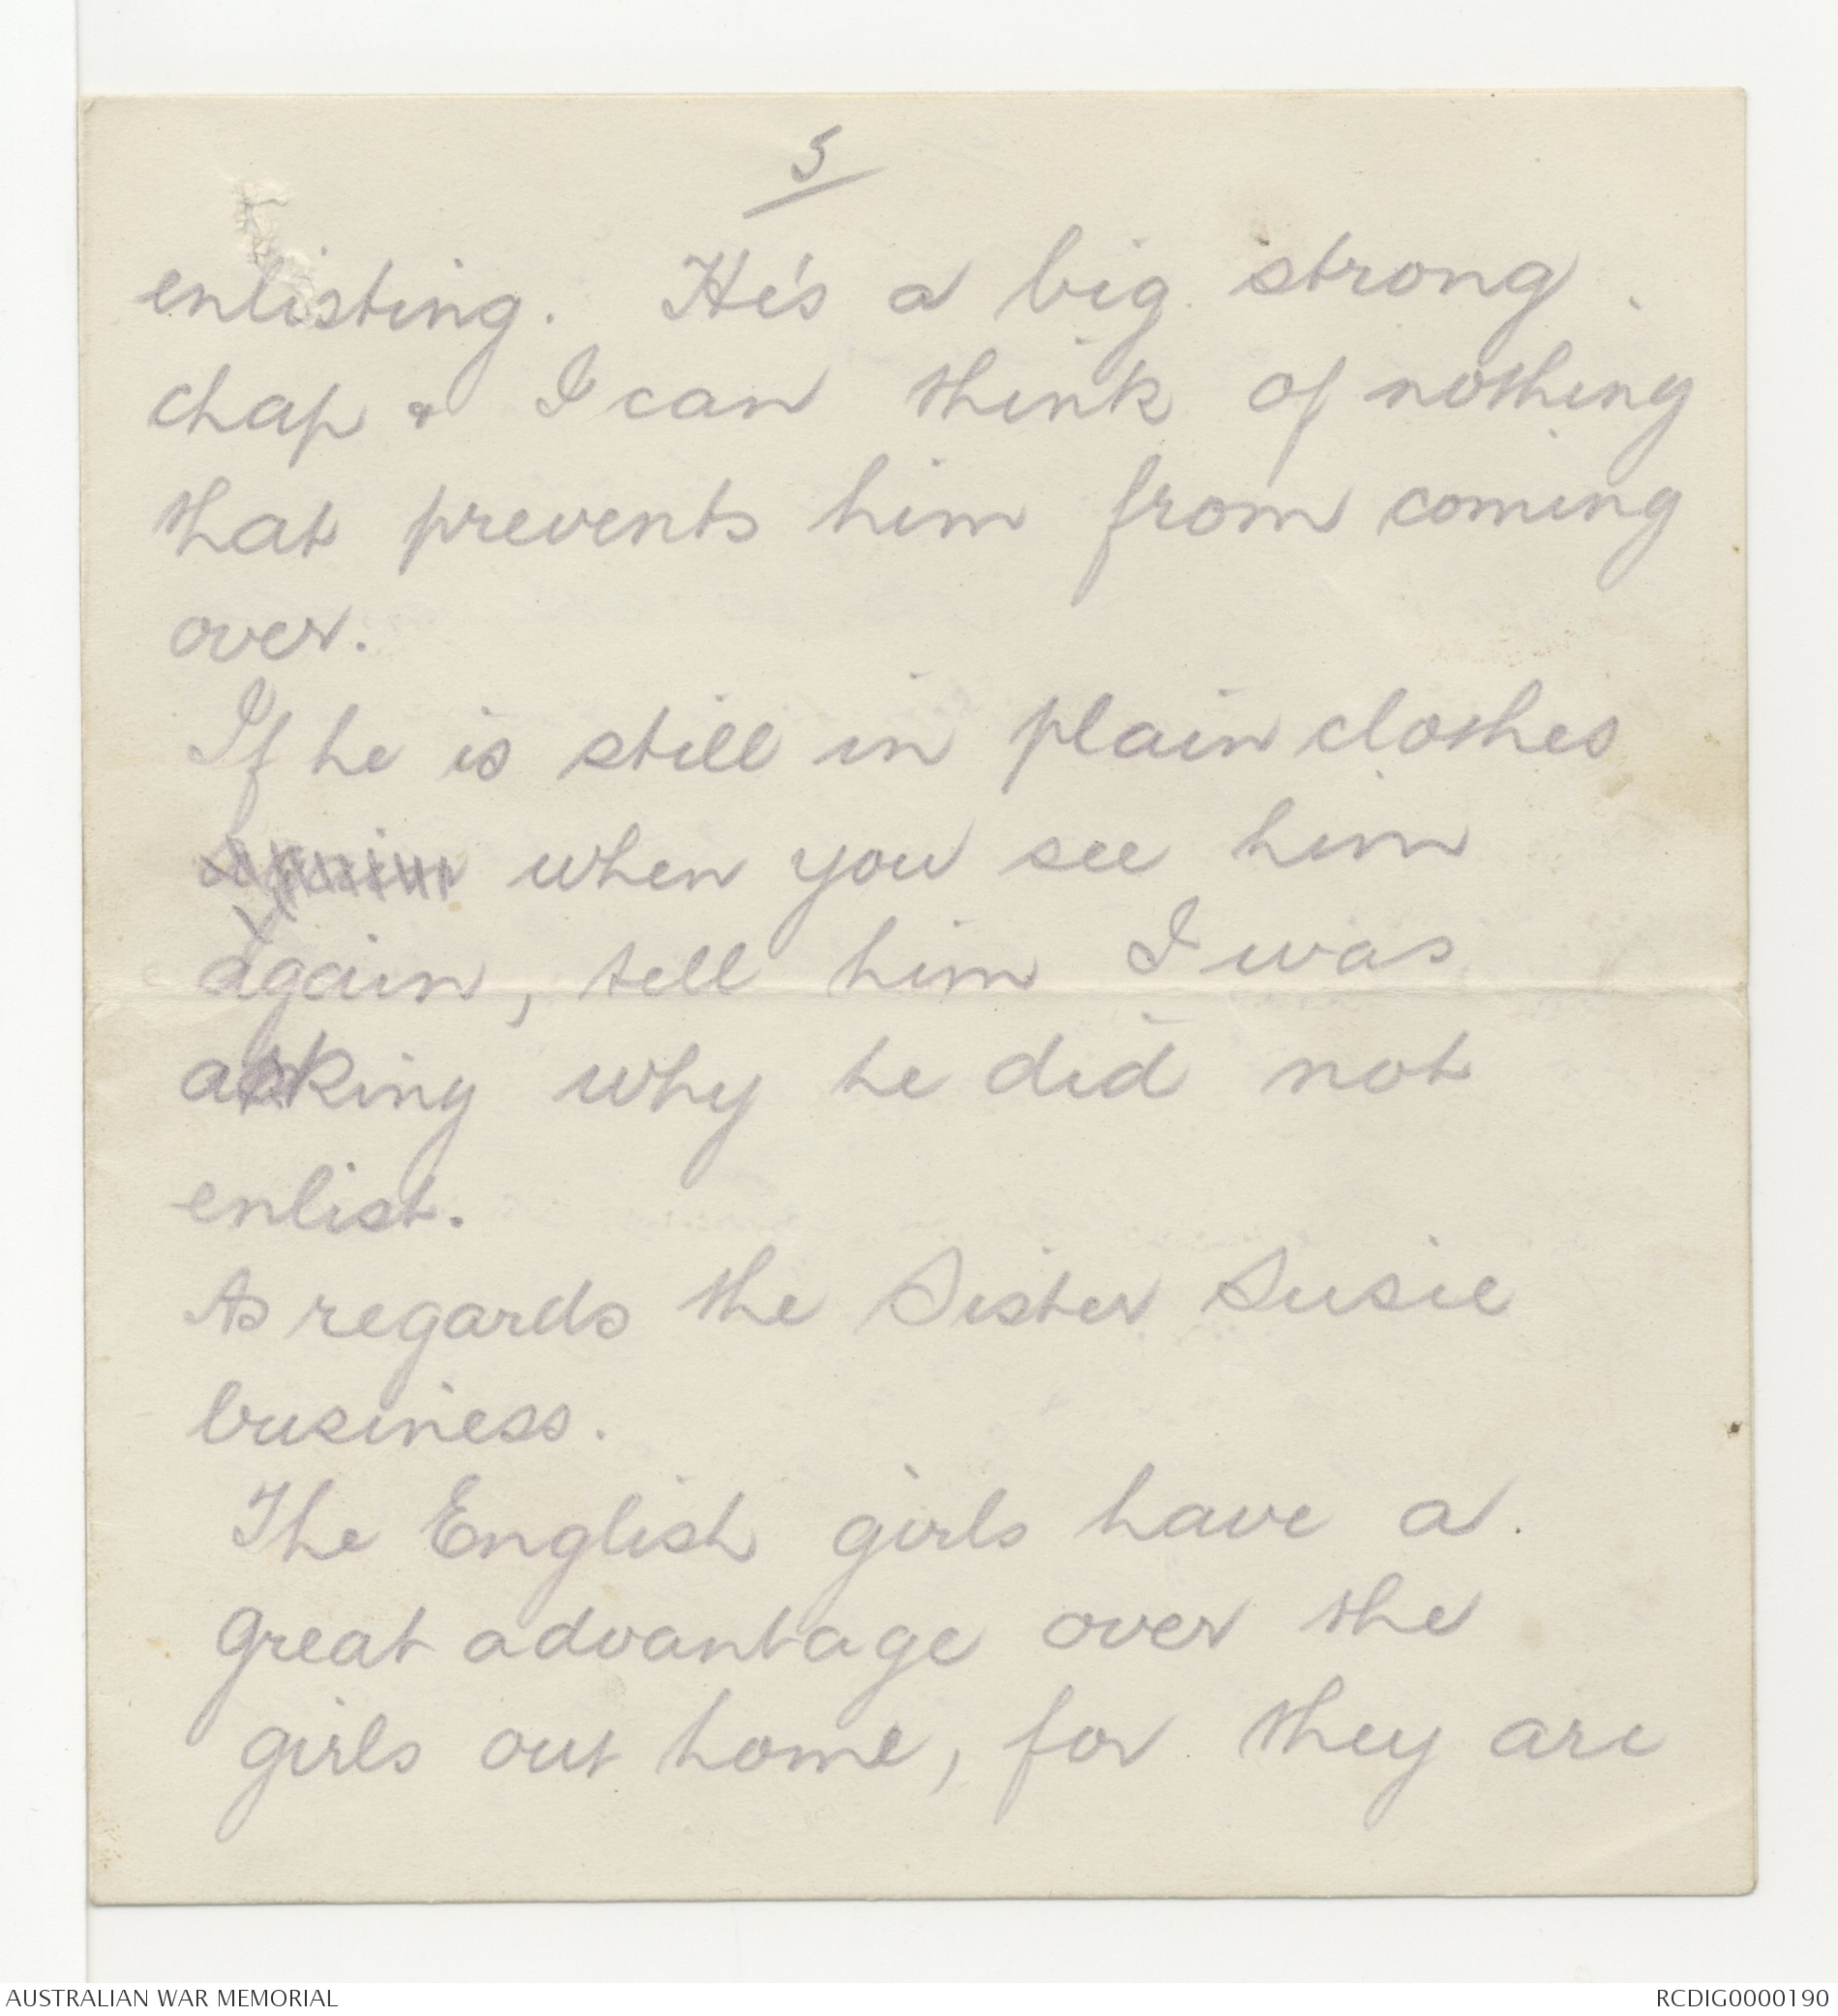 5
enlisting. He's a big strong
chap & I can think of nothing
that prevents him from coming
over.
If he is still in plain clothes
when you see him
again, tell him I was
asking why he did not
enlist.
As regards the Sister Susie
business.
The English girls have a
great advantage over the
girls out home, for they are
AUSTRALIAN WAR MEMORIAL
RCDIG0000190